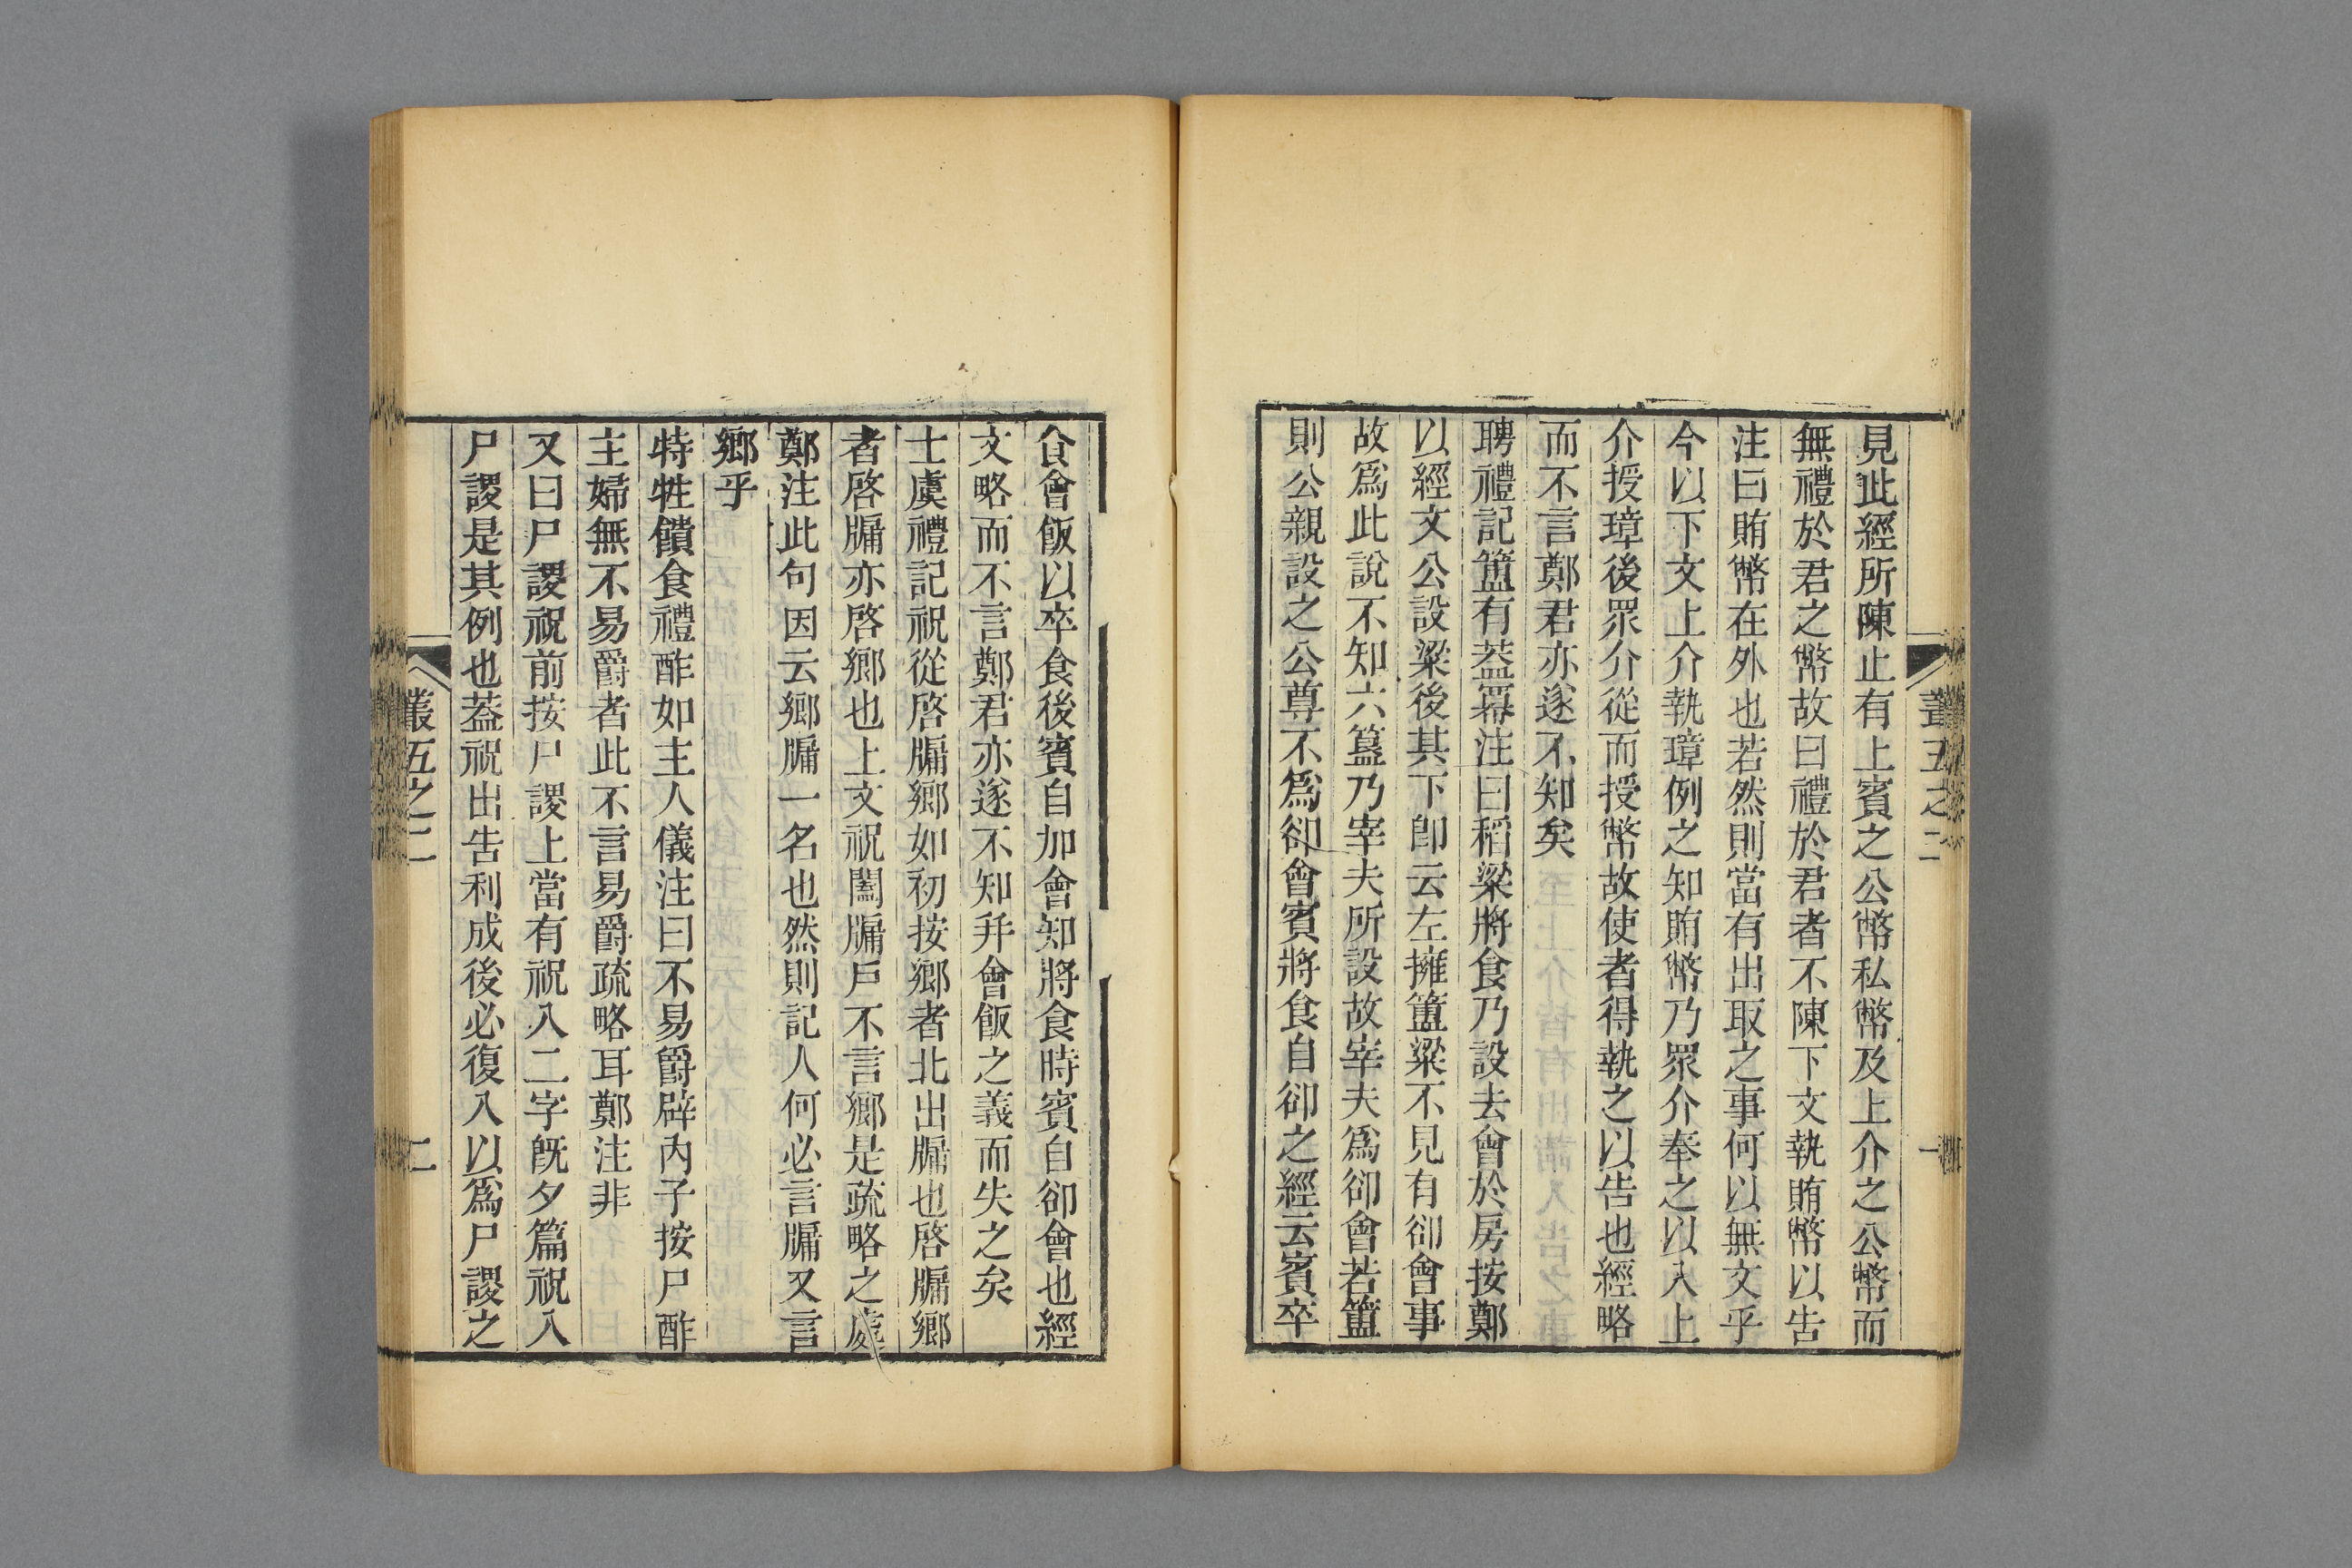 見此經所陳止有上賓之公幣私幣及上介之公幣而
無禮於君之幣故曰禮於君者不陳下文執賄幣以告
注曰賄幣在外也若然則當有出取之事何以無文乎
今以下文上介執璋例之知賄幣乃眾介奉之以入上
介授璋後眾介從而授幣故使者得執之以告也經略
而不言鄭君亦遂不知矣
聘禮記簠有葢冪注曰稻粱將食乃設去會於房按鄭
以經文公設粱後其下卽云左擁簠粱不見有卻會事
故爲此說不知六簋乃宰夫所設故宰夫爲卻會若簠
則公親設之公尊不爲卻會賓將食自卻之經云賓卒
叢五之二
一
食會飯以卒食後賓自加會知將食時賓自卻會也經
文略而不言鄭君亦遂不知幷會飯之義而失之矣
士虞禮記祝從啓牖鄉如初按鄉者北出牖也啓牖鄉
者啓牖亦啓鄉也上文祝闔牖戶不言鄉是疏略之處
鄭注此句因云鄉牖一名也然則記人何必言牖又言
鄉乎
特牲饋食禮酢如主人儀注曰不易爵辟內子按尸酢
主婦無不易爵者此不言易爵疏略耳鄭注非
又曰尸謖祝前按尸謖上當有祝入二字旣夕篇祝入
尸謖是其例也葢祝出告利成後必復入以爲尸謖之
叢五之二
二